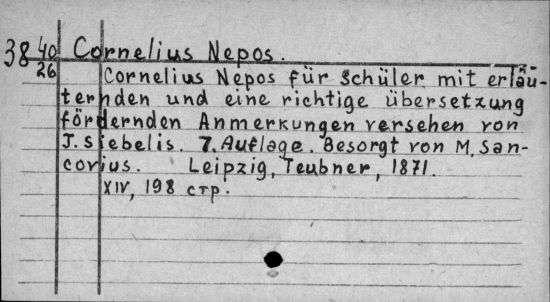 38 40/26 Cornelius Nepos.
Cornelius Nepos für Schüler mit erläu-
ternden und eine richtige übersetzung
fördernden Anmerkungen versehen von
J. Siebelis. 7. Auflage. Besorgt von M. San-
corius. Leipzig, Teubner, 1871.
XIV, 198 стр.